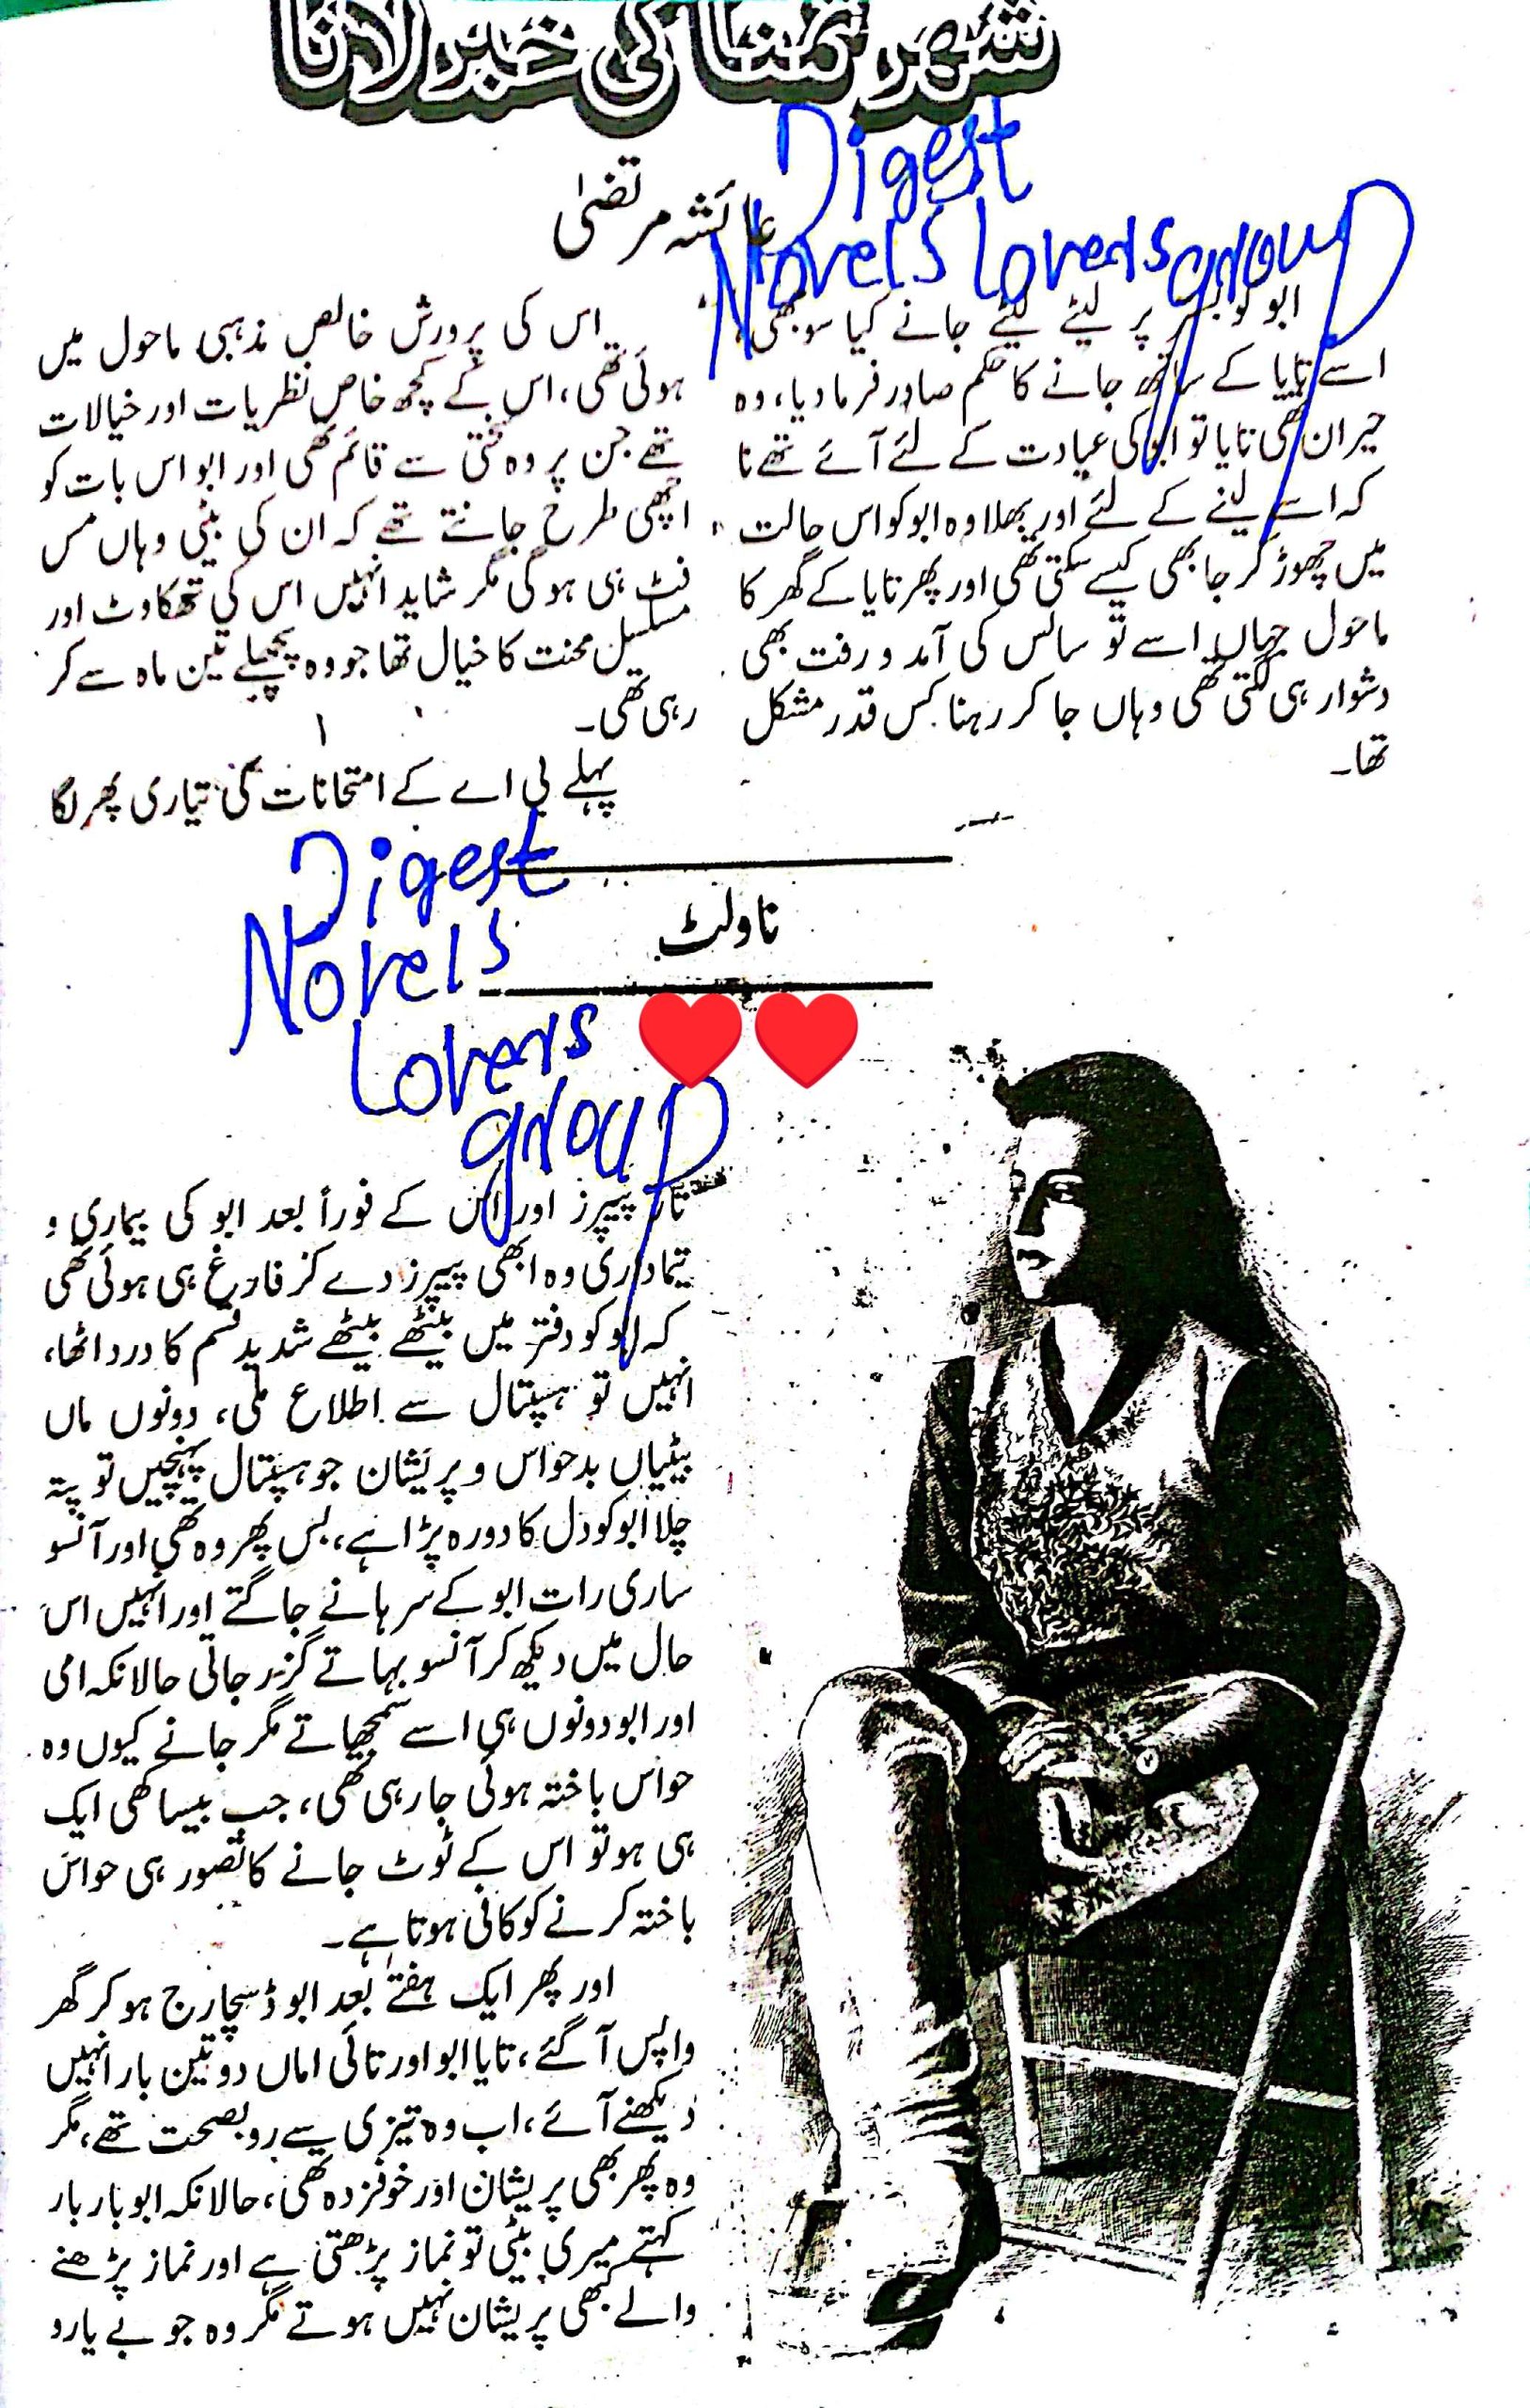 شہر تمنا کی خبر لانا
عائشہ مرتضیٰ
Digest
Novels lovers group
ابو کو بستر پر لیٹے لیٹے جانے کیا سوجھی،
اسے تایا کے ساتھ جانے کا حکم صادر فرما دیا، وہ
حیران تھی تایا تو ابو کی عیادت کے لئے آئے تھے نا
کہ اسے لینے کے لئے اور بھلا وہ ابو کو اس حالت
میں چھوڑ کر جا بھی کیسے سکتی تھی اور پھر تایا کے گھر کا
ماحول جہاں اسے تو سانس کی آمد و رفت بھی
دشوار ہی لگتی تھی وہاں جا کر رہنا کس قدر مشکل
تھا۔
اس کی پرورش خالص مذہبی ماحول میں
ہوئی تھی، اس کے کچھ خاص نظریات اور خیالات
تھے جن پر وہ سختی سے قائم تھی اور ابو اس بات کو
اچھی طرح جانتے تھے کہ ان کی بیٹی وہاں مس
فٹ ہی ہو گی مگر شاید انہیں اس کی تھکاوٹ اور
مسلسل محنت کا خیال تھا جو وہ پچھلے تین ماہ سے کر
رہی تھی۔
پہلے بی اے کے امتحانات کی تیاری پھر لگا
ناولٹ
Digest
Novels
lovers
group
تار پیپرز اور اس کے فوراً بعد ابو کی بیماری و
تیمارداری وہ ابھی پیپرز دے کر فارغ ہی ہوئی تھی
کہ ابو کو دفتر میں بیٹھے بیٹھے شدید قسم کا درد اٹھا،
انہیں تو ہسپتال سے اطلاع ملی، دونوں ماں
بیٹیاں بدحواس و پریشان جو ہسپتال پہنچیں تو پتہ
چلا ابو کو دل کا دورہ پڑا ہے، بس پھر وہ تھی اور آنسو
ساری رات ابو کے سرہانے جاگتے اور انہیں اس
حال میں دیکھ کر آنسو بہاتے گزر جاتی حالانکہ امی
اور ابو دونوں ہی اسے سمجھاتے مگر جانے کیوں وہ
حواس باختہ ہوئی جا رہی تھی، جب بیساکھی ایک
ہی ہو تو اس کے ٹوٹ جانے کا تصور ہی حواس
باختہ کرنے کو کافی ہوتا ہے۔
اور پھر ایک ہفتے بعد ابو ڈسچارج ہو کر گھر
واپس آ گئے، تایا ابو اور تائی اماں دو تین بار انہیں
دیکھنے آئے، اب وہ تیزی سے روبصحت تھے، مگر
وہ پھر بھی پریشان اور خوفزدہ تھی، حالانکہ ابو بار بار
کہتے میری بیٹی تو نماز پڑھتی ہے اور نماز پڑھنے
والے کبھی پریشان نہیں ہوتے مگر وہ جو بے یارو